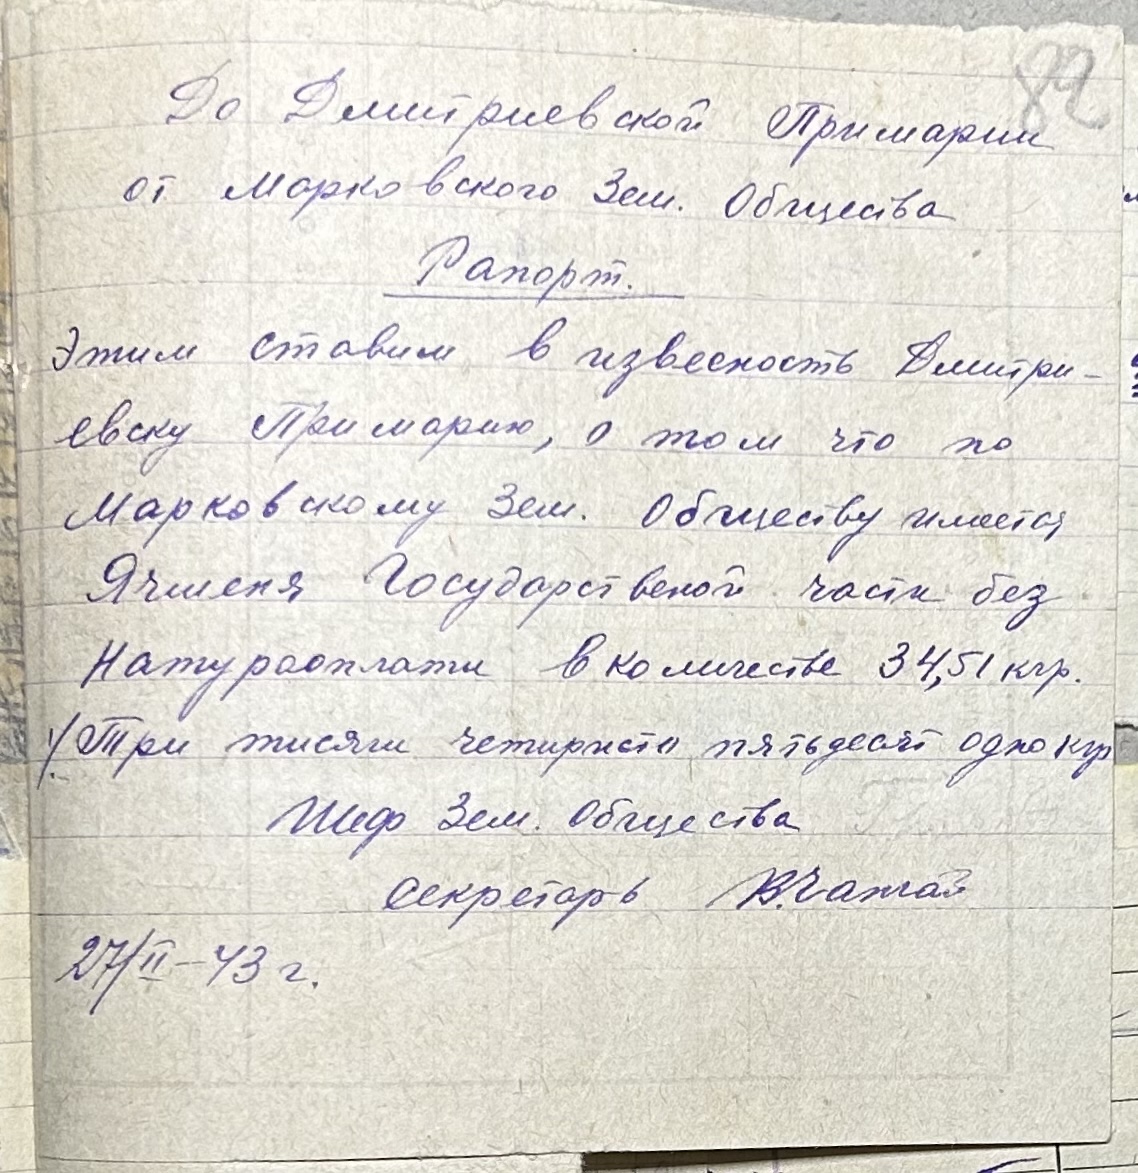 82
До Дмитриевской Примарии
от Марковского Зем. Общества
Рапорт.
Этим ставим в извесность Дмитри-
евску Примарию, о том что по
Марковскому Зем. Обществу имеется
Ячменя Государственой части без
Натурооплати в количестве 34,51 кгр.
Три тисячи четириста пятьдесят одно кгр
Шеф Зем. Общества
секретарь
27/II-43 г.